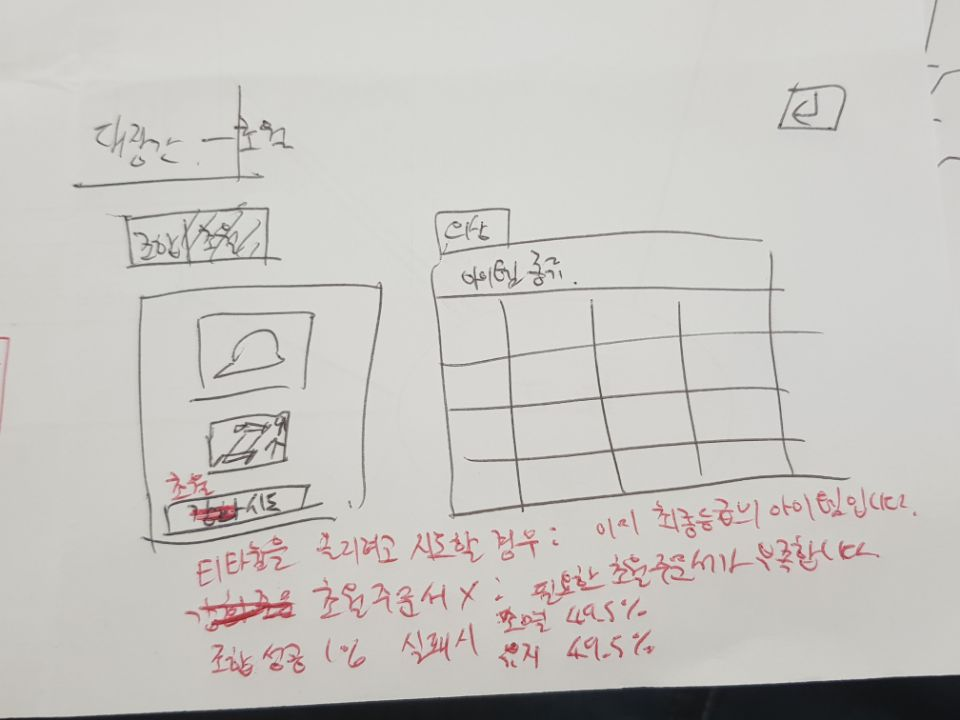 대장간 - 초월
조합 초월
의상
아이템 종류.
초월
시도
티타늄을 올리려고 시도할 경우 : 이미 최종등급의 아이템입니다.
초월주문서 X : 필요한 초월주문서가 부족합니다
조합 성공 1% 실패시 소멸 49.5%
유지 49.5%